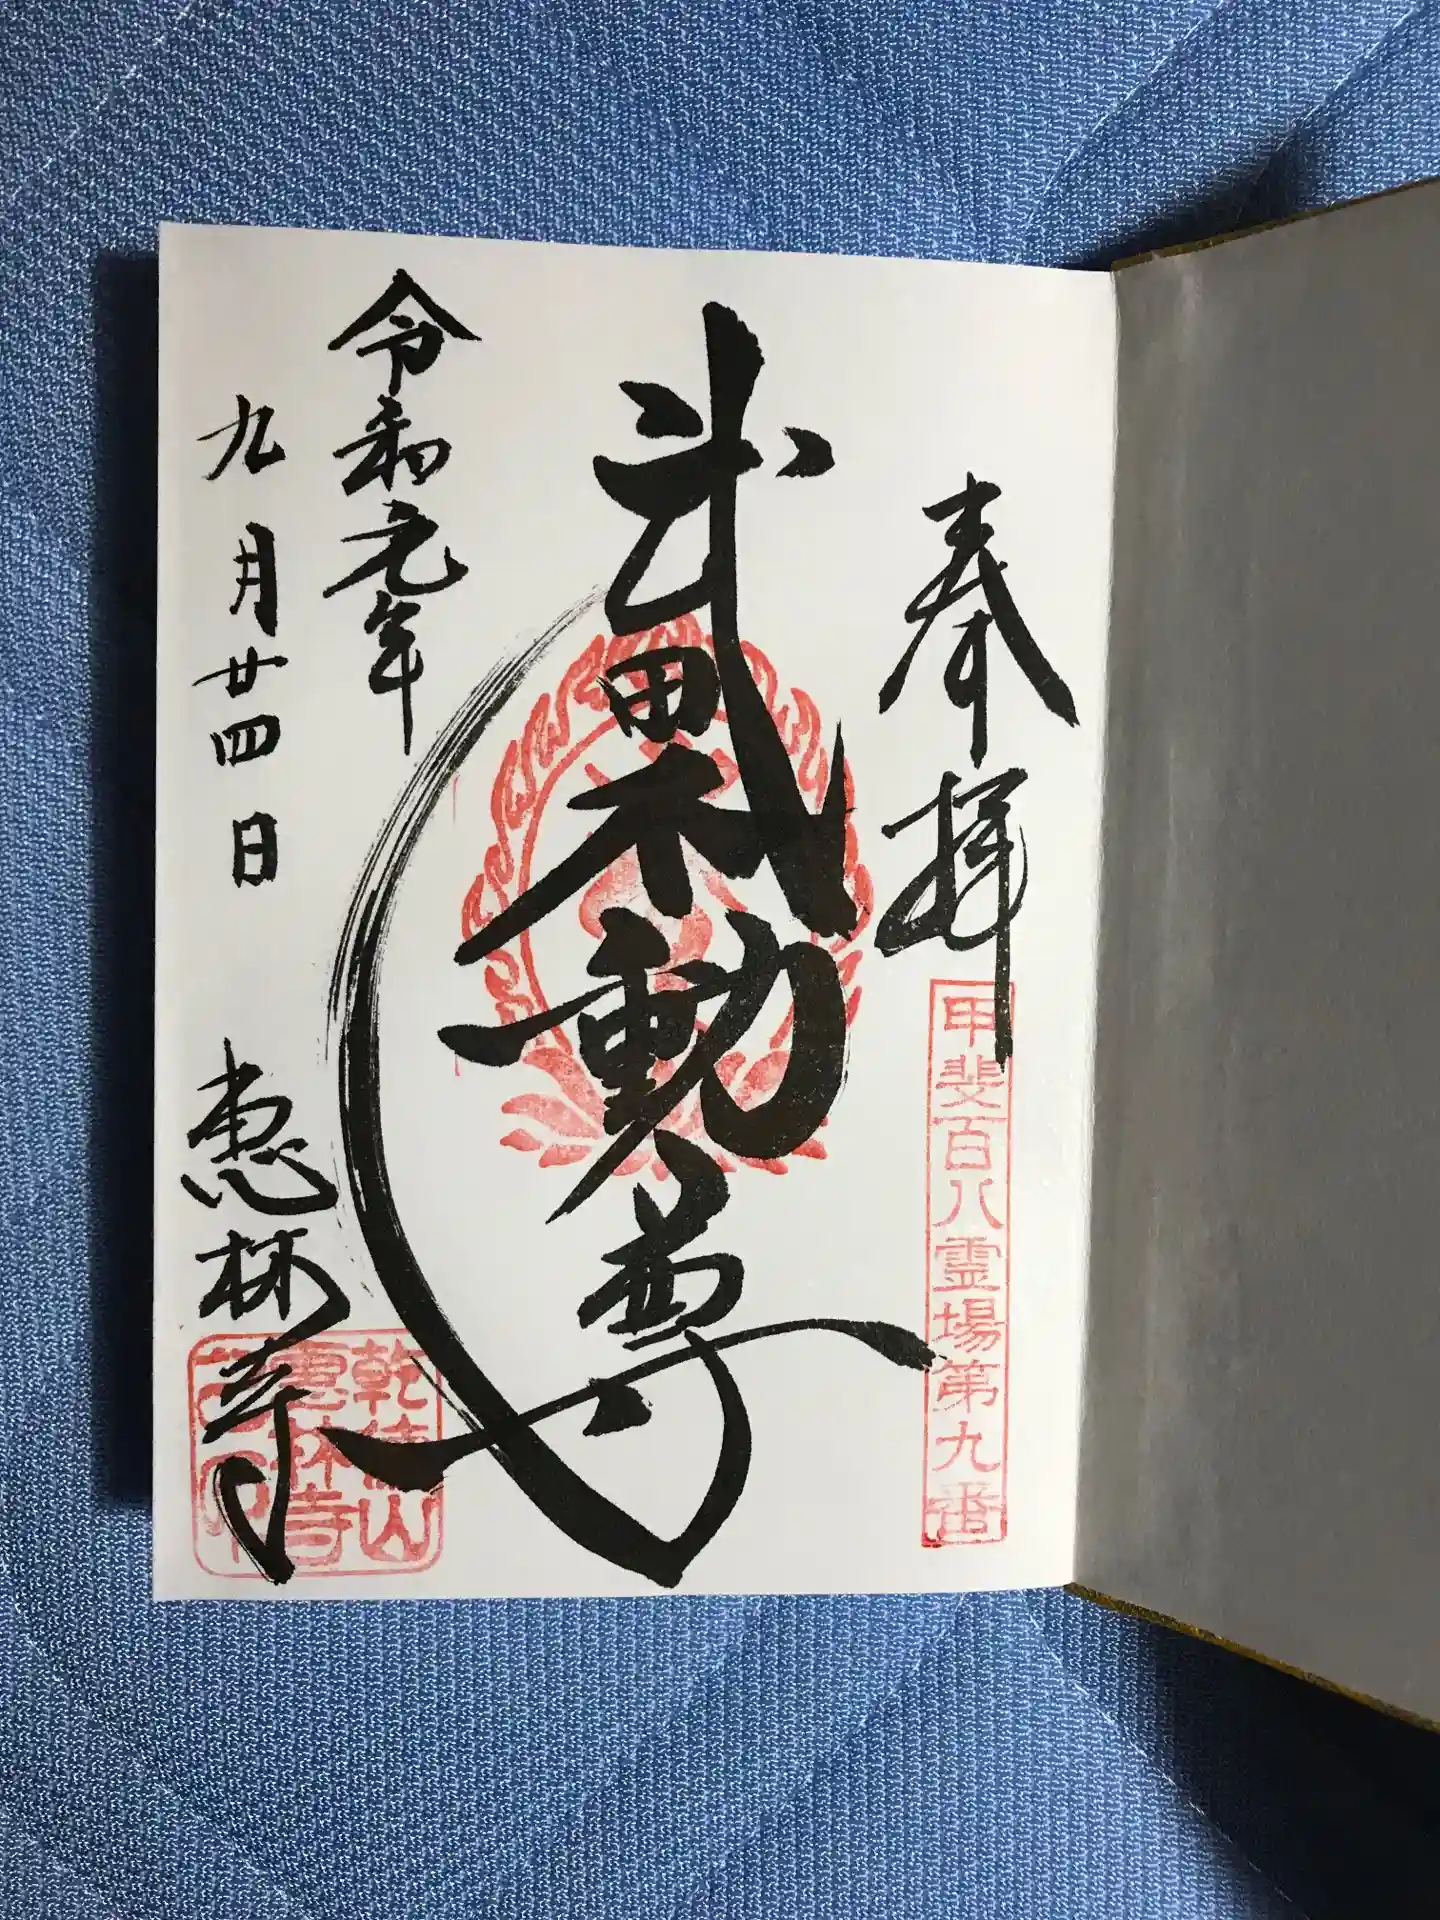 奉拝
甲斐百八霊場第九番
武田不動尊
令和元年
九月廿四日
恵林寺
乾徳山
恵林寺